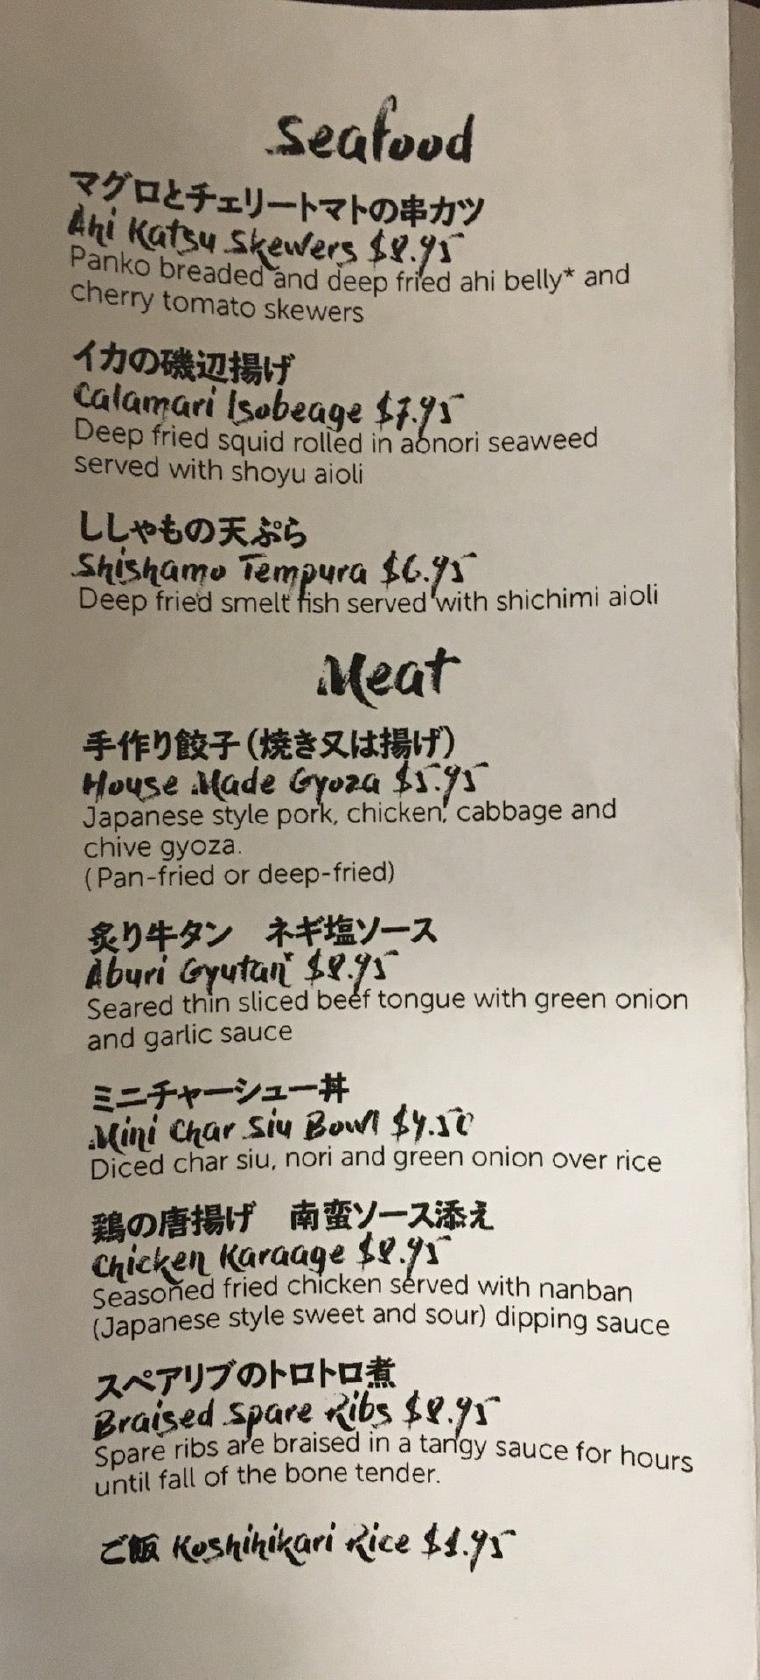 Seafood
マグロとチェリートマトの串カツ
Ahi Katsu Skewers $8.95
Panko breaded and deep fried ahi belly* and
cherry tomato skewers
イカの磯辺揚げ
Calamari Isobeage $7.95
Deep fried squid rolled in aonori seaweed
served with shoyu aioli
ししゃもの天ぷら
Shishamo Tempura $6.95
Deep fried smelt fish served with shichimi aioli
Meat
手作り餃子(焼き又は揚げ)
House Made Gyoza $5.95
Japanese style pork, chicken, cabbage and
chive gyoza.
(Pan-fried or deep-fried)
炙り牛タン　ネギ塩ソース
Aburi Gyutan* $8.95
Seared thin sliced beef tongue with green onion
and garlic sauce
ミニチャーシュー丼
Mini Char Siu Bowl $4.50
Diced char siu, nori and green onion over rice
鶏の唐揚げ　南蛮ソース添え
Chicken Karaage $8.95
Seasoned fried chicken served with nanban
(Japanese style sweet and sour) dipping sauce
スペアリブのトロトロ煮
Braised Spare Ribs $8.95
Spare ribs are braised in a tangy sauce for hours
until fall of the bone tender.
ご飯 Koshihikari Rice $1.95